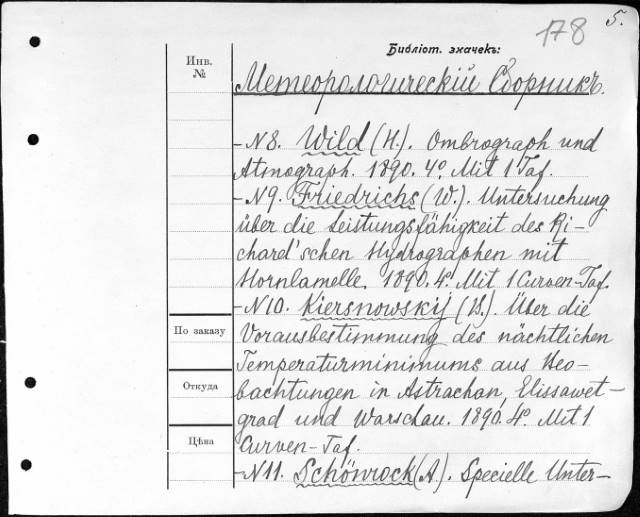 5.
178
Библіот. значекъ:
Инв.
№
Метеорологическій Сборникъ.
- N8. Wild (H.). Ombrograph und
Atmograph. 1890. 4º. Mit 1 Taf.
- N9. Friedrichs (W.). Untersuchung
über die Leistungsfähigkeit des Ri-
chard'schen Hydrographen mit
Hornlamelle. 1890. 4º. Mit 1 Curven-Taf.
- N10. Kiersnowskij (B.). Über die
По заказу
Vorausbestimmung des nächtlichen
Temperaturminimums aus Beo-
Откуда
bachtungen in Astrachan, Elissawet-
grad und Warschau. 1890. 4º. Mit 1
Цѣна
Curven-Taf.
- N11. Schönrock (A.). Specielle Unter-